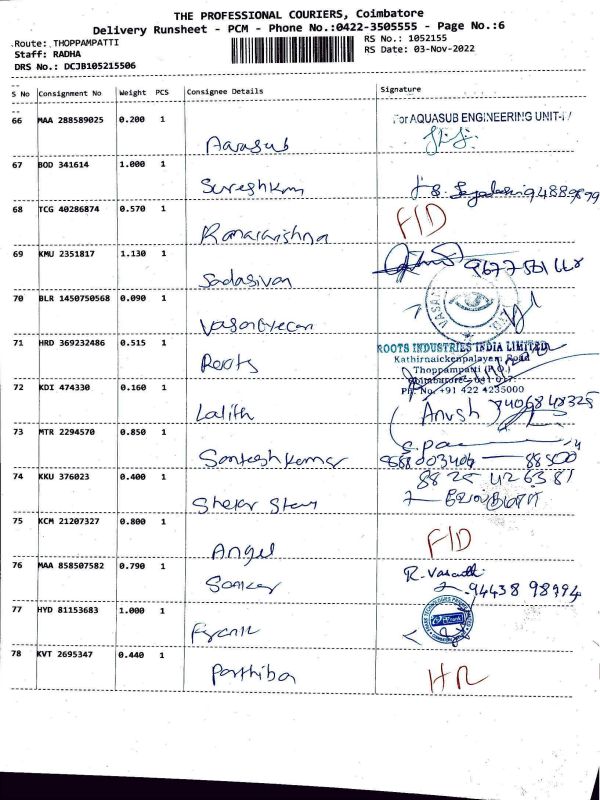 THE PROFESSIONAL COURIERS, Coimbatore
Delivery Runsheet - PCM - Phone No.:0422-3505555 - Page No.:6
Route: THOPPAMPATTI
RS No.: 1052155
Staff: RADHA
RS Date: 03-Nov-2022
DRS No.: DCJB105215506
S No Consignment No Weight PCS Consignee Details Signature
66 MAA 288589025 0.200 1 For AQUASUB ENGINEERING UNIT-
67 BOD 341614 1.000 1 Sureshkm
68 TCG 40286874 0.570 1 Ramakrishna FID
69 KMU 2351817 1.130 1 Sadasivan
70 BLR 1450750568 0.090 1 Vasan eyecan
71 HRD 369232486 0.515 1 Roots
ROOTS INDUSTRIES INDIA LIMITED
Kathirnaickenpalayam Road
Thoppampatti (P.O.)
Coimbatore - 641 017.
Ph. No. +91 422 4235000
72 KDI 474330 0.160 1 Lalith Anush
73 MTR 2294570 0.850 1 Santoshkumar
74 KKU 376023 0.400 1
75 KCM 21207327 0.800 1 Angel FID
76 MAA 858507582 0.790 1 Sankar R. Vasanthi
77 HYD 81153683 1.000 1
78 KVT 2695347 0.440 1 Parthiba HR